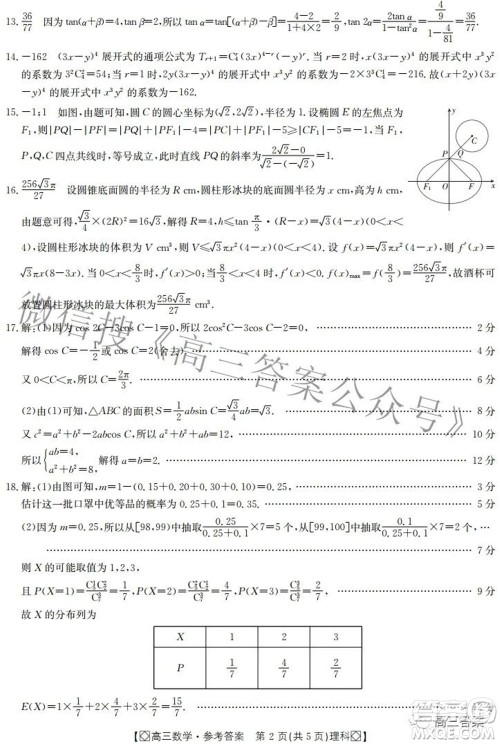 13. 36/77 因为tan(α+β)=4,tan β=2,所以tan α=tan[(α+β)-β]=(4-2)/(1+4×2)=2/9,tan 2α=2tanα/(1-tan²α)=(4/9)/(1-4/81)=36/77.
14. -162 (3x-y)⁴展开式的通项公式为Tᵣ₊₁=C₄ʳ(3x)⁴⁻ʳ(-y)ʳ.当r=2时,x(3x-y)⁴展开式中x³y²
的系数为3²C₄²=54;当r=1时,2y(3x-y)⁴展开式中x³y²的系数为-2×3³C₄¹=-216.故(x+2y)(3x
-y)⁴的展开式中x³y²的系数为-162.
15. -1;1 如图,由题可知,圆C的圆心坐标为(√2,2√2),半径为1.设椭圆E的左焦点为
F₁,则|PQ|-|PF|=|PQ|+|PF₁|-4=|PC|+|PF₁|-5≥|CF₁|-5=-1,当F₁,
P,Q,C四点共线时,等号成立,此时直线PQ的斜率为(2√2-0)/(√2-(-√2))=1.
y
C
Q
P
F₁
O
F
x
16. 256√3π/27 设圆锥底面圆的半径为R cm,圆柱形冰块的底面圆半径为x cm,高为h cm,
由题意可得,√3/4×(2R)²=16√3,解得R=4,h≤tan π/3·(R-x)=√3(4-x)(0<x<
4),设圆柱形冰块的体积为V cm³,则V≤√3πx²(4-x)(0<x<4).设f(x)=√3πx²(4-x),则f′(x)=
√3πx(8-3x).当0<x<8/3时,f′(x)>0;当8/3<x<4时,f′(x)<0.f(x)max=f(8/3)=256√3π/27,故酒杯可
放置圆柱形冰块的最大体积为256√3π/27 cm³.
17.解:(1)因为cos 2C-3cos C-1=0,所以2cos²C-3cos C-2=0, 2分
解得cos C=-1/2或cos C=2(舍去). 4分
又0<C<π,所以C=2π/3. 6分
(2)由(1)可知,△ABC的面积S=1/2absin C=√3/4ab=√3. 8分
又c²=a²+b²-2abcos C,所以a²+b²+ab=12, 10分
所以{ab=4, a²+b²=8,解得a=b=2. 12分
18.解:(1)由图可知,m=1-(0.15+0.20+0.30+0.10)=0.25, 3分
估计这一批口罩中优等品的概率为0.25+0.1=0.35. 5分
(2)因为m=0.25,所以从[98,99)中抽取0.25/(0.25+0.1)×7=5个,从[99,100]中抽取0.1/(0.25+0.1)×7=2个,
7分
则X的可能取值为1,2,3,
且P(X=1)=C₅¹C₂²/C₇³=1/7,P(X=2)=C₅²C₂¹/C₇³=4/7,P(X=3)=C₅³C₂⁰/C₇³=2/7, 9分
故X的分布列为
X 1 2 3
P 1/7 4/7 2/7
E(X)=1×1/7+2×4/7+3×2/7=15/7.
【高三数学·参考答案 第2页(共5页)理科】
微信搜《高三答案公众号》
高三答案